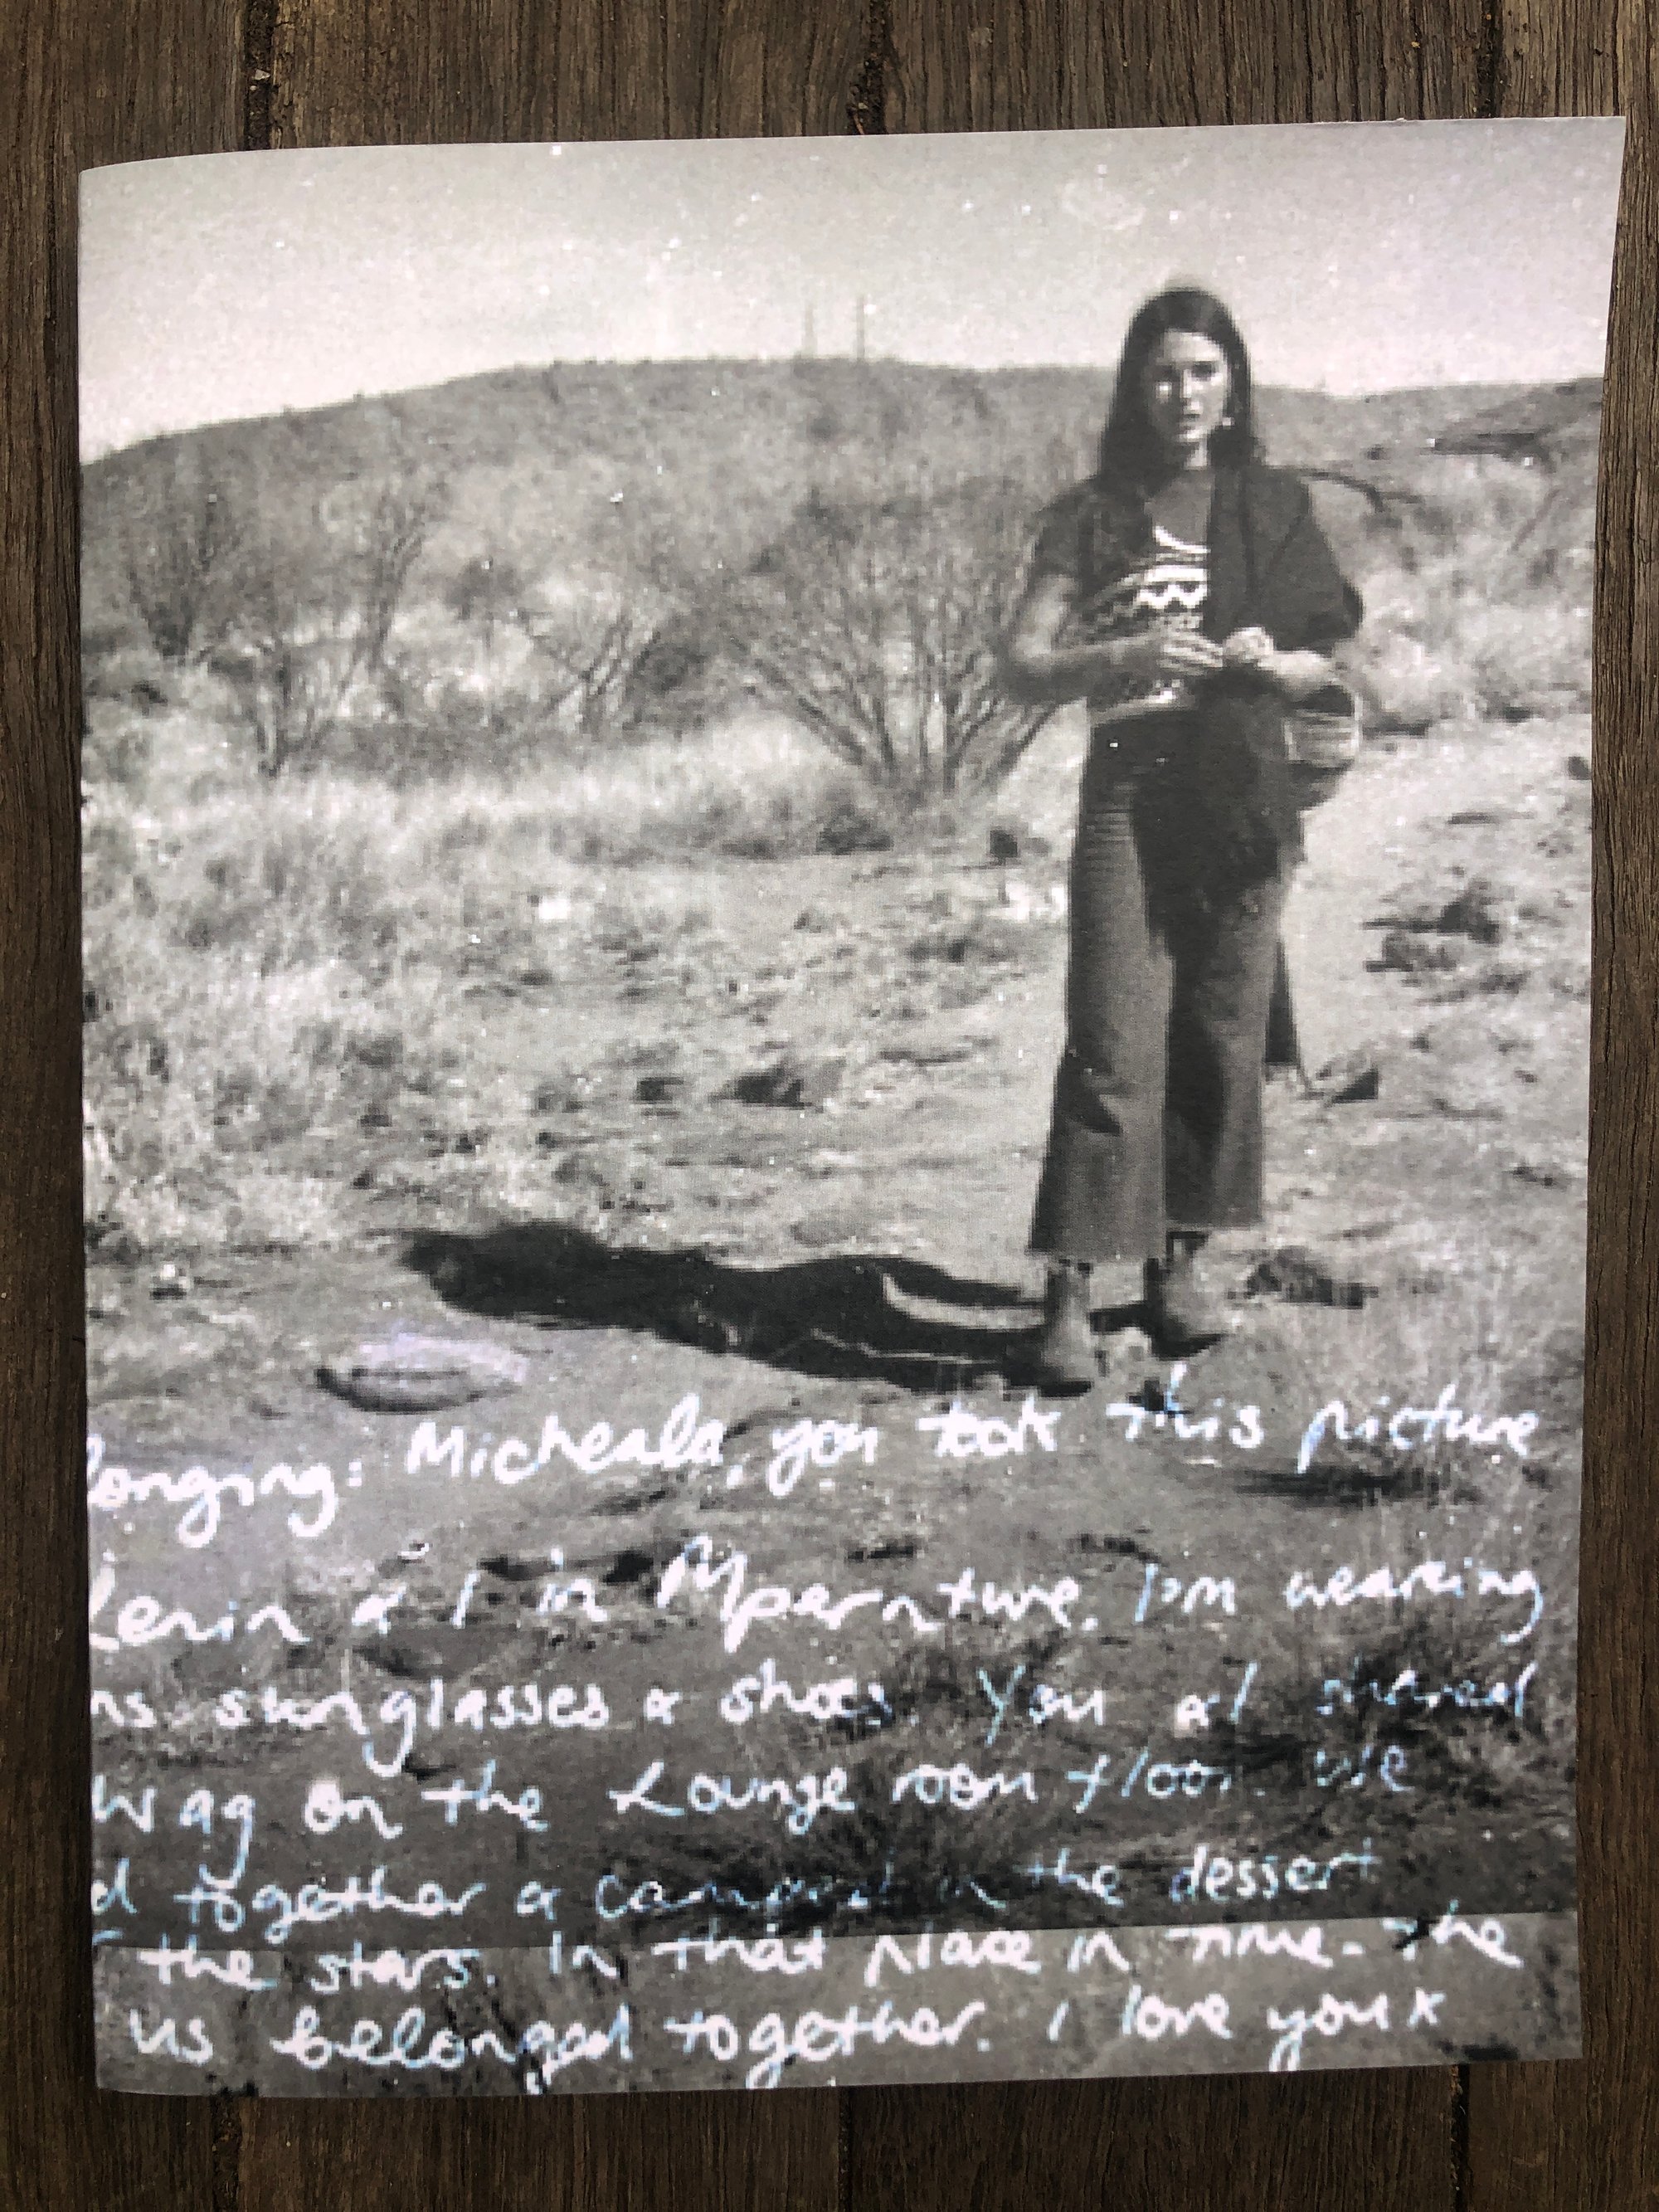 longing: Micheala, you took this picture
& I in Mperntwe. I'm wearing
ns sunglasses & shoes. You & I shared
wag on the Lounge room floor. We
d together & camped in the dessert
the stars. In that place in time - the
us belonged together. I love you x